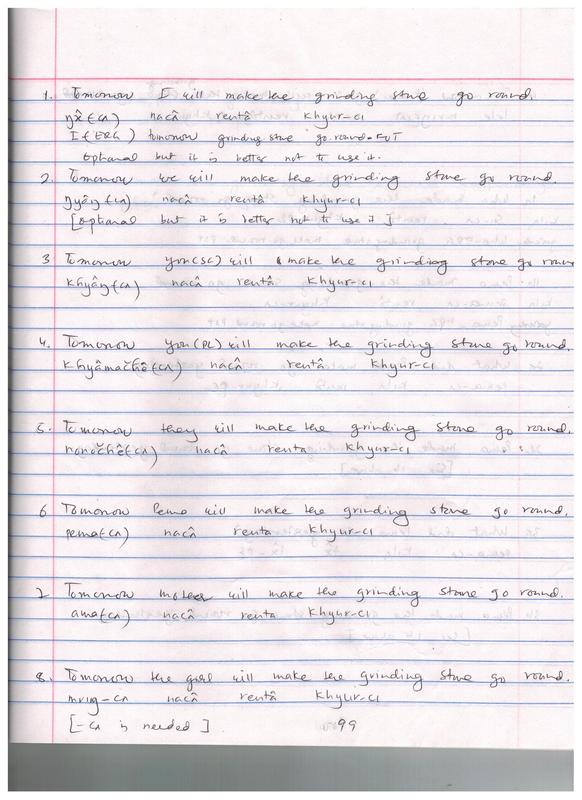 1. Tomorrow I will make the grinding stone go round.
(CA) nacâ rentâ khyur-CI
I (ERG) tomorrow grinding stone go.round-FUT
optional but it is better not to use it.
2. Tomorrow we will make the grinding stone go round.
ŋyâŋ(CA) nacâ rentâ khyur-CI
[optional but it is better not to use it]
3 Tomorrow you(SG) will make the grinding stone go round
khyâŋ(CA) nacâ rentâ khyur-CI
4. Tomorrow you(PL) will make the grinding stone go round.
khyâmačhê(CA) nacâ rentâ khyur-CI
5. Tomorrow they will make the grinding stone go round.
nonočhê(CA) nacâ renta khyur-CI
6 Tomorrow Pema will make the grinding stone go round.
pema(CA) nacâ renta khyur-CI
7 Tomorrow mother will make the grinding stone go round.
ama(CA) nacâ renta khyur-CI
8. Tomorrow the girl will make the grinding stone go round.
mriŋ-CA nacâ rentâ khyur-CI
[-CA is needed] 99